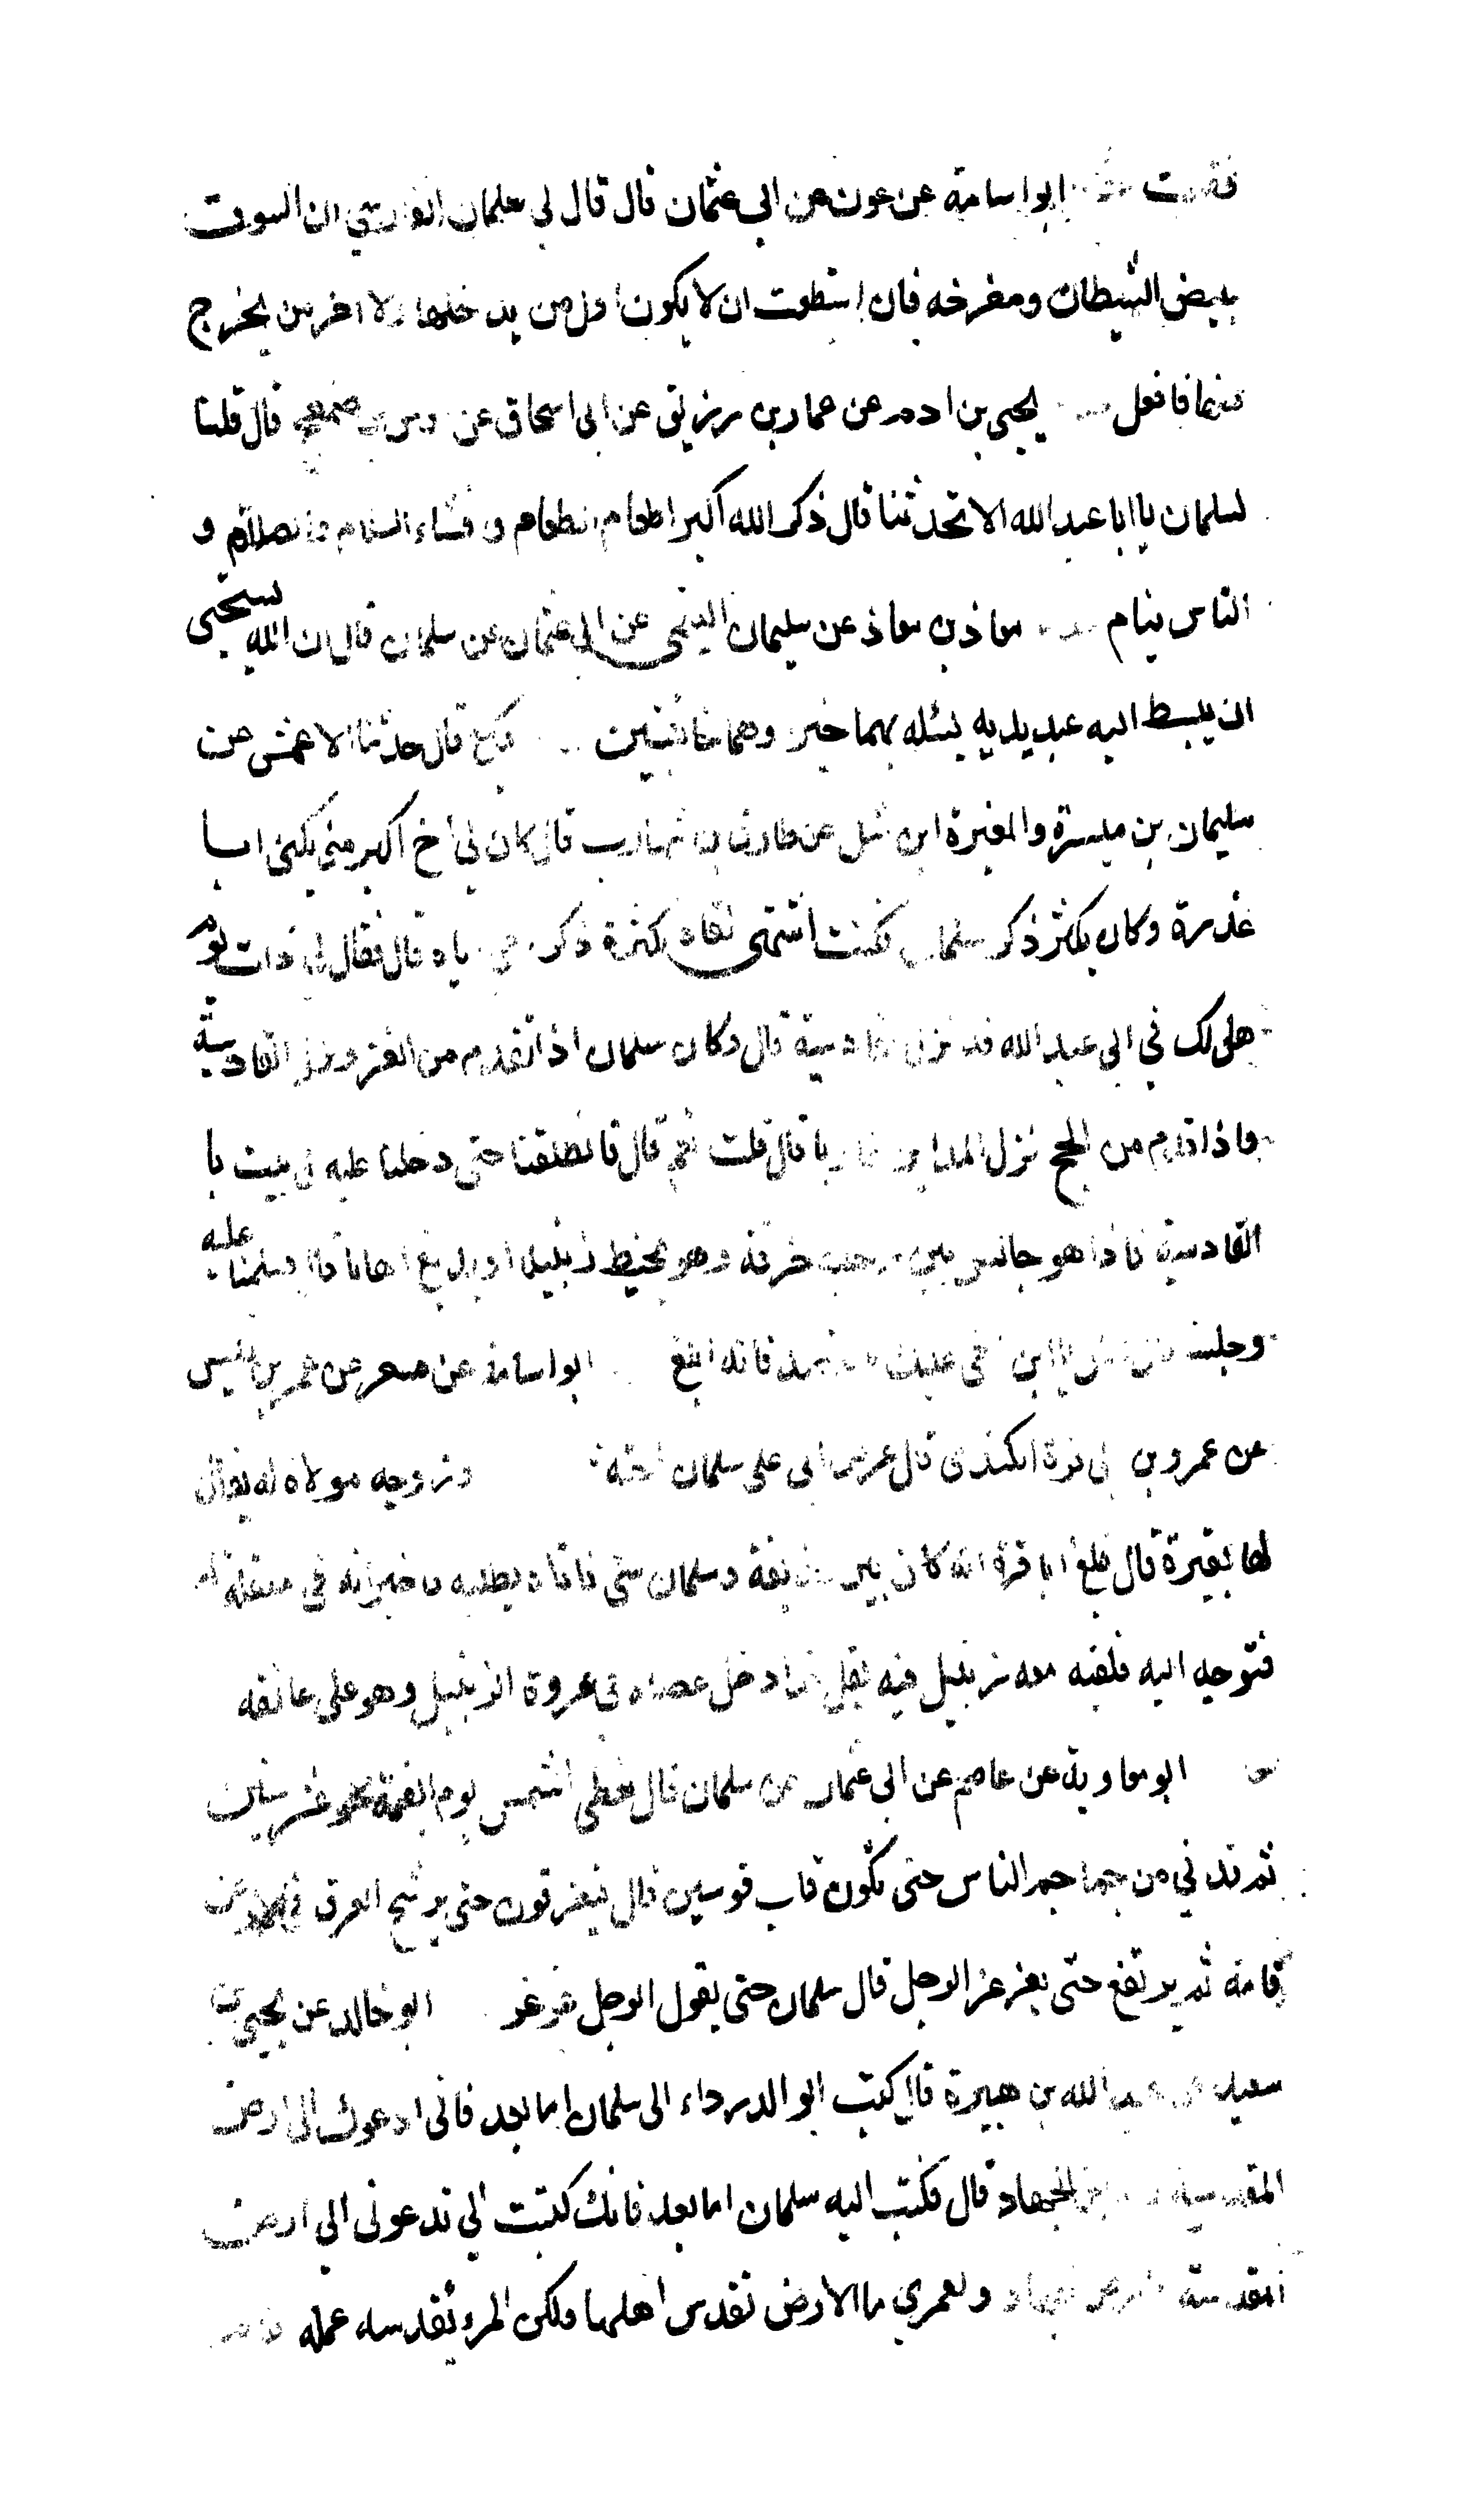 ابو اسامة عن عوف عن ابي عثمان قال قال لي سلمان الفارسي ان السوق
بيض الشيطان ومفرخه فان استطعت ان لا يكون اول من يدخلها ولا اخر من يخرج
منها فافعل يحيى بن ادم عن عمار بن رزيق عن ابي اسحاق عن اوس بن ضمعج قال قلنا
لسلمان يا ابا عبد الله الا تحدثنا قال ذكر الله اكبر اطعام الطعام وافشاء السلام والصلاة و
الناس نيام معاذ بن معاذ عن سليمان التيمي عن ابي عثمان عن سلمان قال ان الله يستحيى
ان يبسط اليه عبد يديه يسئله بهما خيرا وهما خائبتين وكيع قال حدثنا الاعمش عن
سليمان بن ميسرة والمغيرة ابن شبل عن طارق بن شهاب قال كان لي اخ اكبر مني يكنى ابا
عذرة وكان يكثر ذكر سلمان فكنت اشتهى لقاه لكثرة ذكر اياه قال فقال لي ذات يوم
هل لك في ابي عبد الله قد نزل القادسية قال وكان سلمان اذا تقدم من الغزو نزل القادسية
واذا قدم من الحج نزل المداين غازيا قال قلت نعم قال فانطلقنا حتى دخلنا عليه في بيت با
القادسية فاذا هو جالس بين رجليه خرقة وهو يخيط زبيلا او يدبغ اهابا قال فسلمنا عليه
وجلسنا ابو اسامة عن مسعر عن عمر بن قيس
عن عمرو بن ابي قرة الكندي قال عرض ابي على سلمان اخته وتزوجه مولاة له يقال
لها بقيرة قال فبلغ ابا قرة انه كان بين حذيفة وسلمان شئ فاتاه يطلبه فاخبر انه في مبقلة له
فتوجه اليه فلقيه معه زبيل فيه بقل قد ادخل عصاه في عروة الزبيل وهو على عاتقه
ابو معاوية عن عاصم عن ابي عثمان عن سلمان قال تعطى الشمس يوم القيمة حر عشر سنين
ثم تدني من جماجم الناس حتى تكون قاب قوسين قال فيعرقون حتى يرشح العرق في الارض
قامة ثم يرتفع حتى يغرغر الرجل قال سلمان حتى يقول الرجل غرغر ابو خالد عن يحيى بن
سعيد عن عبد الله بن هبيرة قال كتب ابو الدرداء الى سلمان اما بعد فاني ادعوك الى ارض
المقدسة وارض الجهاد قال فكتب اليه سلمان اما بعد فانك كتبت الي تدعوني الي ارض
المقدسة وارض الجهاد ولعمري ما الارض تقدس اهلها ولكن المرء يقدسه عمله